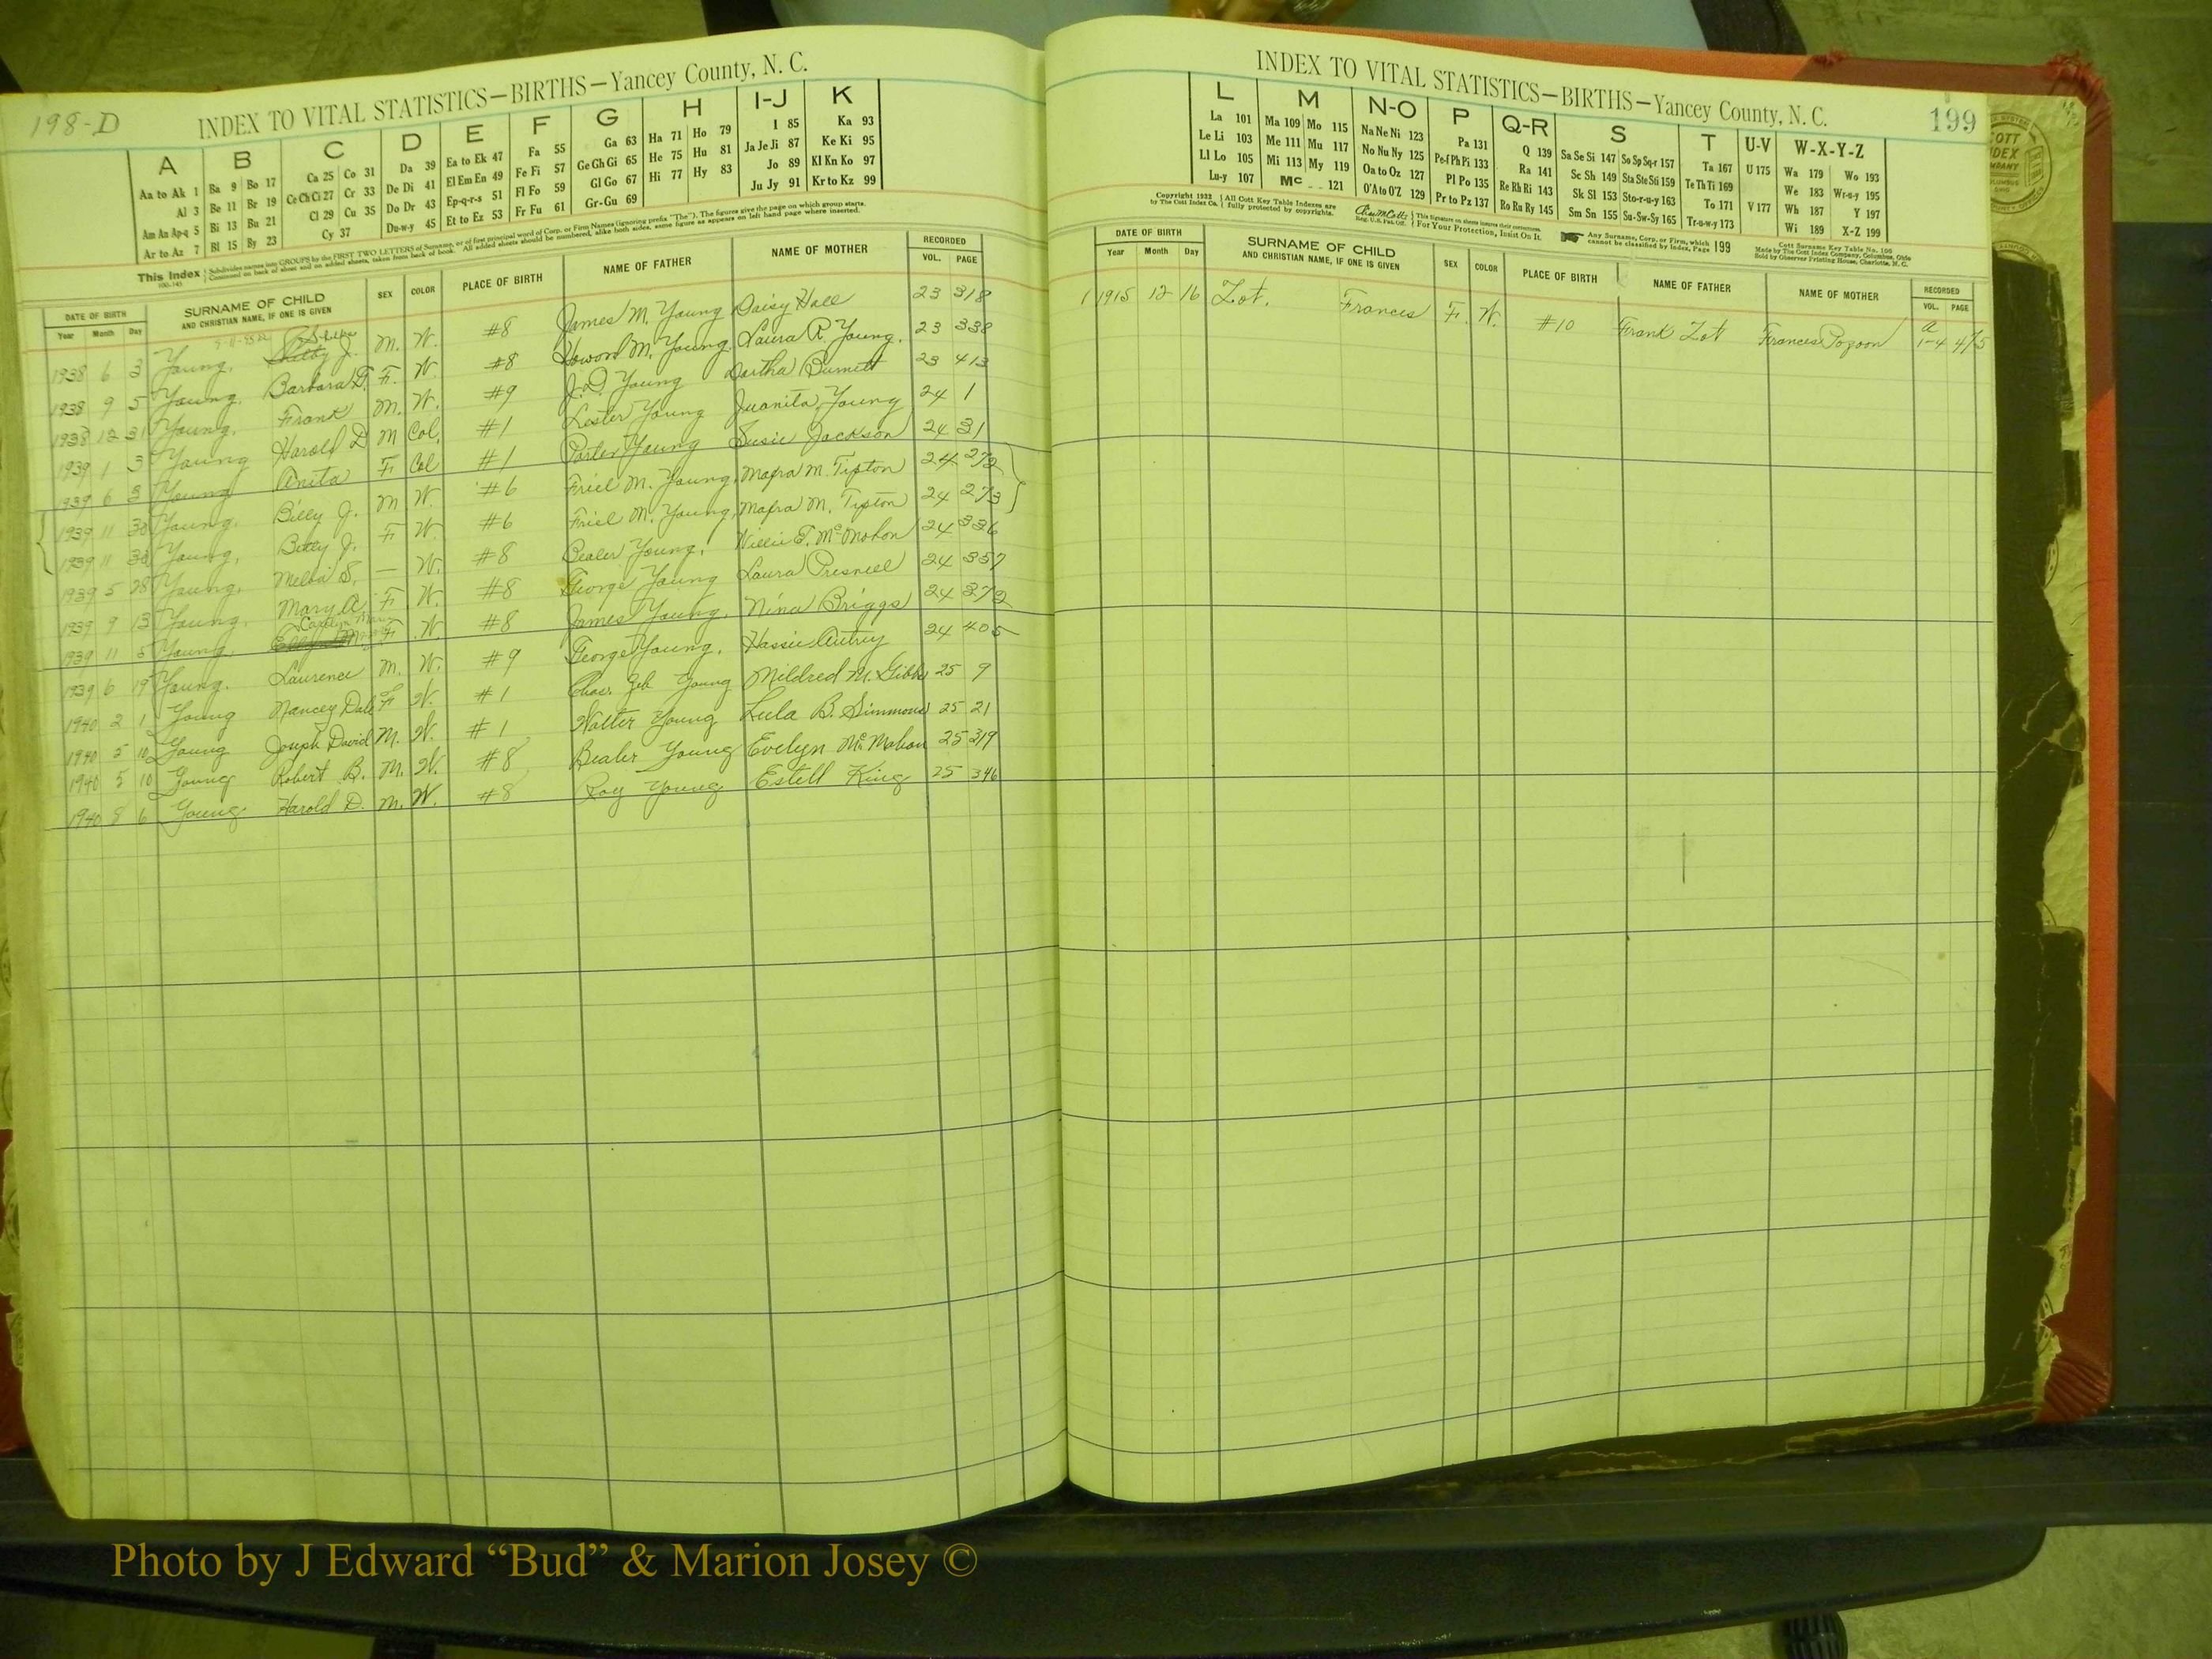 198-D
INDEX TO VITAL STATISTICS—BIRTHS—Yancey County, N. C.
A B C D E F G H I-J K
Aa to Ak 1 Ba 9 Bo 17 Ca 25 Co 31 Da 39 Ea to Ek 47 Fa 55 Ga 63 Ha 71 Ho 79 I 85 Ka 93
Al 3 Be 11 Br 19 Ce Ch Ci 27 Cr 33 De Di 41 El Em En 49 Fe Fi 57 Ge Gh Gi 65 He 75 Hu 81 Ja Je Ji 87 Ke Ki 95
Am An Ap-q 5 Bi 13 Bu 21 Cl 29 Cu 35 Do Dr 43 Ep-q-r-s 51 Fl Fo 59 Gl Go 67 Hi 77 Hy 83 Jo 89 Kl Kn Ko 97
Ar to Az 7 Bl 15 By 23 Cy 37 Du-w-y 45 Et to Ez 53 Fr Fu 61 Gr-Gu 69 Ju Jy 91 Kr to Kz 99
This Index Subdivides names into GROUPS by the FIRST TWO LETTERS of Surname, or of first principal word of Corp. or Firm Names (ignoring prefix "The"). The figures give the page on which group starts.
Continued on back of sheet and on added sheets, taken from back of book. All added sheets should be numbered, alike both sides, same figure as appears on left hand page where inserted.
DATE OF BIRTH SURNAME OF CHILD SEX COLOR PLACE OF BIRTH NAME OF FATHER NAME OF MOTHER RECORDED
Year Month Day AND CHRISTIAN NAME, IF ONE IS GIVEN VOL. PAGE
1938 6 3 Young, J. M. W. #8 James M. Young Daisy Hall 23 318
1938 9 5 Young, Barbara D. F. W. #8 Howard M. Young, Laura R. Young. 23 338
1938 12 31 Young, Frank M. W. #9 J.D. Young Dortha Burnett 23 413
1939 1 3 Young Harold D M Col. #1 Lester Young Juanita Young 24 1
1939 6 3 Young Anita F Col #1 Porter Young Susie Jackson 24 31
1939 11 30 Young, Billy J. M W. #6 Friel M. Young, Mafra M. Tipton 24 272
1939 11 30 Young, Betty J. F W. #6 Friel M. Young, Mafra M. Tipton 24 273
1939 5 28 Young, Melba S. — W. #8 Bealer Young, Willie E. McMahon 24 336
1939 9 13 Young, Mary A. F. W. #8 George Young Laura Presnell 24 357
1939 11 5 Young, F. W. #8 James Young, Nina Briggs 24 372
1939 6 19 Young. Laurence M. W. #9 George Young, Hassie Autrey 24 405
1940 2 1 Young Nancey Dale F W. #1 Chas. Zeb Young Mildred M. Gibbs 25 9
1940 5 10 Young Joseph David M. W. #1 Walter Young Lula B. Simmons 25 21
1940 5 10 Young Robert B. M. W. #8 Bealer Young Evelyn McMahan 25 319
1940 8 6 Young Harold D. M. W. #8 Roy Young Estell King 25 346
INDEX TO VITAL STATISTICS—BIRTHS—Yancey County, N. C.
199
L M N-O P Q-R S T U-V W-X-Y-Z
La 101 Ma 109 Mo 115 Na Ne Ni 123 Pa 131 Q 139 Sa Se Si 147 So Sp Sq-r 157 Ta 167 U 175 Wa 179 Wo 193
Le Li 103 Me 111 Mu 117 No Nu Ny 125 Pe-f Ph Pi 133 Ra 141 Sc Sh 149 Sta Ste Sti 159 Te Th Ti 169 We 183 Wr-u-y 195
Ll Lo 105 Mi 113 My 119 Oa to Oz 127 Pl Po 135 Re Rh Ri 143 Sk Sl 153 Sto-r-u-y 163 To 171 V 177 Wh 187 Y 197
Lu-y 107 Mc 121 O'A to O'Z 129 Pr to Pz 137 Ro Ru Ry 145 Sm Sn 155 Su-Sw-Sy 165 Tr-u-w-y 173 Wi 189 X-Z 199
Copyright 1932 by The Cott Index Co. All Cott Key Table Indexes are fully protected by copyrights. For Your Protection, Insist On It. Any Surname, Corp. or Firm, which cannot be classified by Index, Page 199
Cott Surname Key Table No. 106
Made by The Cott Index Company, Columbus, Ohio
Sold by Observer Printing House, Charlotte, N. C.
DATE OF BIRTH SURNAME OF CHILD SEX COLOR PLACE OF BIRTH NAME OF FATHER NAME OF MOTHER RECORDED
Year Month Day AND CHRISTIAN NAME, IF ONE IS GIVEN VOL. PAGE
1 1915 12 16 Zot. Frances F. W. #10 Frank Zot Frances Pozoon a 1-4 415
Photo by J Edward “Bud” & Marion Josey ©